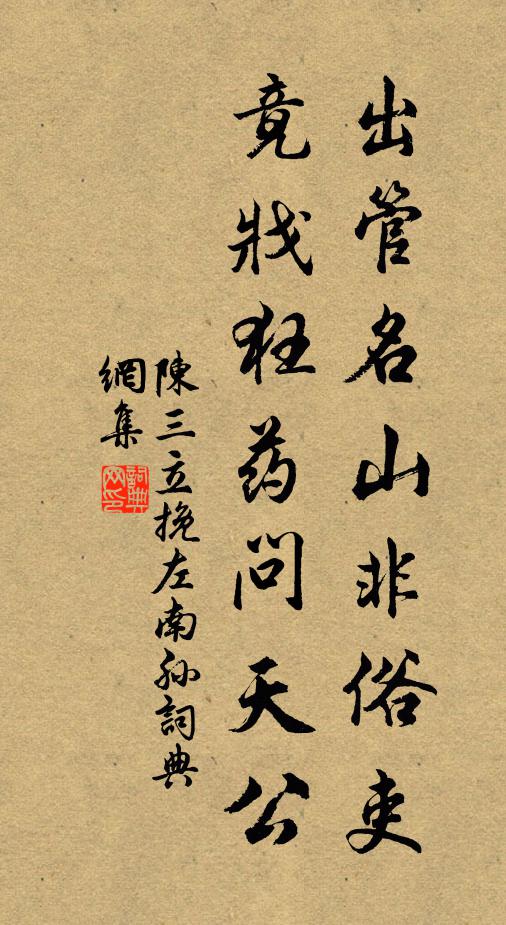 出管名山非俗吏
竟戕狂药問天公
陳三立挽左南孙詞典
網集
詞典网印